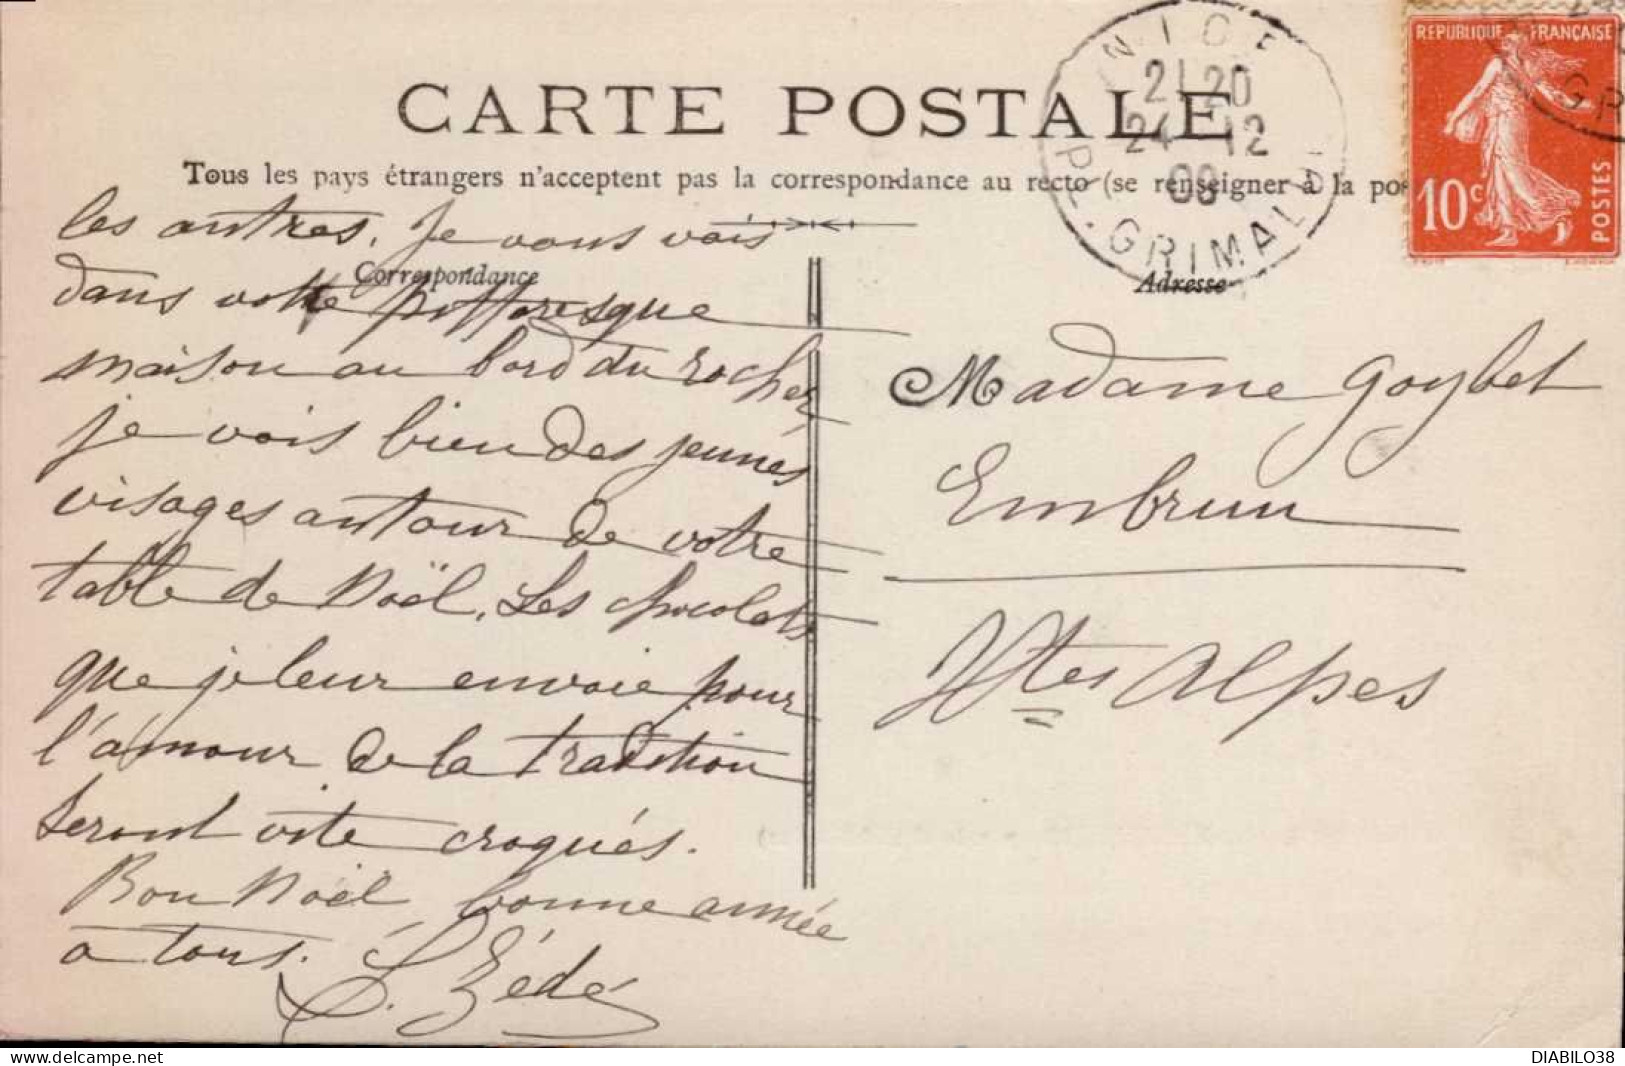 CARTE POSTALE
Tous les pays étrangers n'acceptent pas la correspondance au recto (se renseigner à la pos
Correspondance
les autres. Je vous vois
dans votre pittoresque
maison au bord du rocher
je vois bien des jeunes
visages autour de votre
table de Noël. Les chocolats
que je leur envoie pour
l'amour de la tradition
seront vite croqués.
Bon Noël bonne année
à tous. Zédé
Adresse
Madame Goybet
Embrun
Htes Alpes
NICE
21 20
24 - 12
PL. GRIMALDI
REPUBLIQUE FRANÇAISE
10c
POSTES
GR
DIABILO38